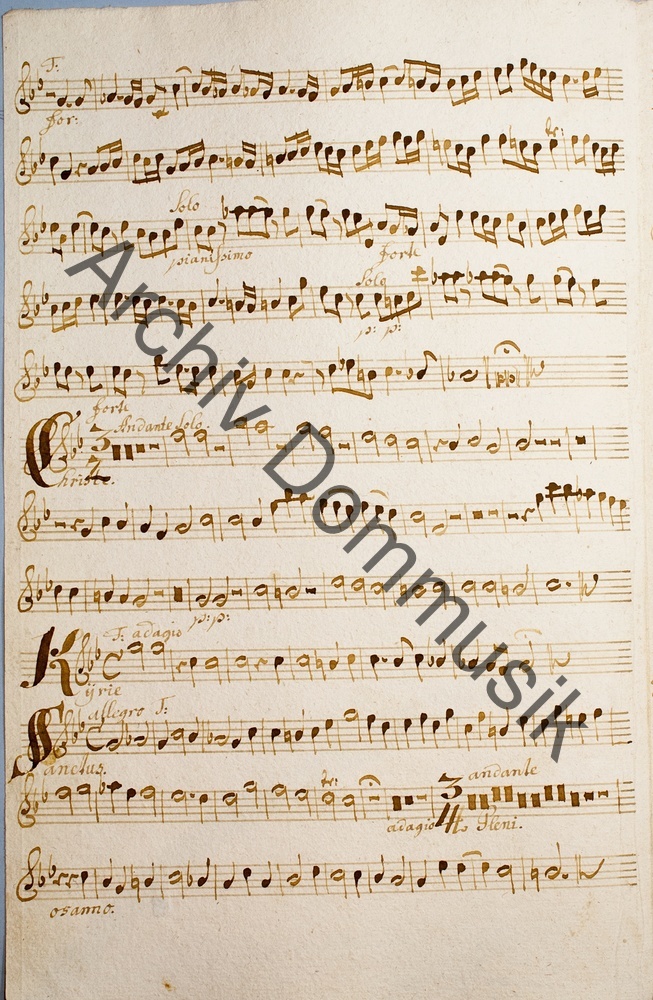 T:
for:
tr:
Solo
pianissimo
forte
Solo
p: p:
forte
Andante Solo
3
4
Christe.
p: p:
T: adagio
Kÿrie
allegro T:
Sanctus.
tr:
adagio
3
4
andante
Pleni.
osanna.
Archiv Dommusik